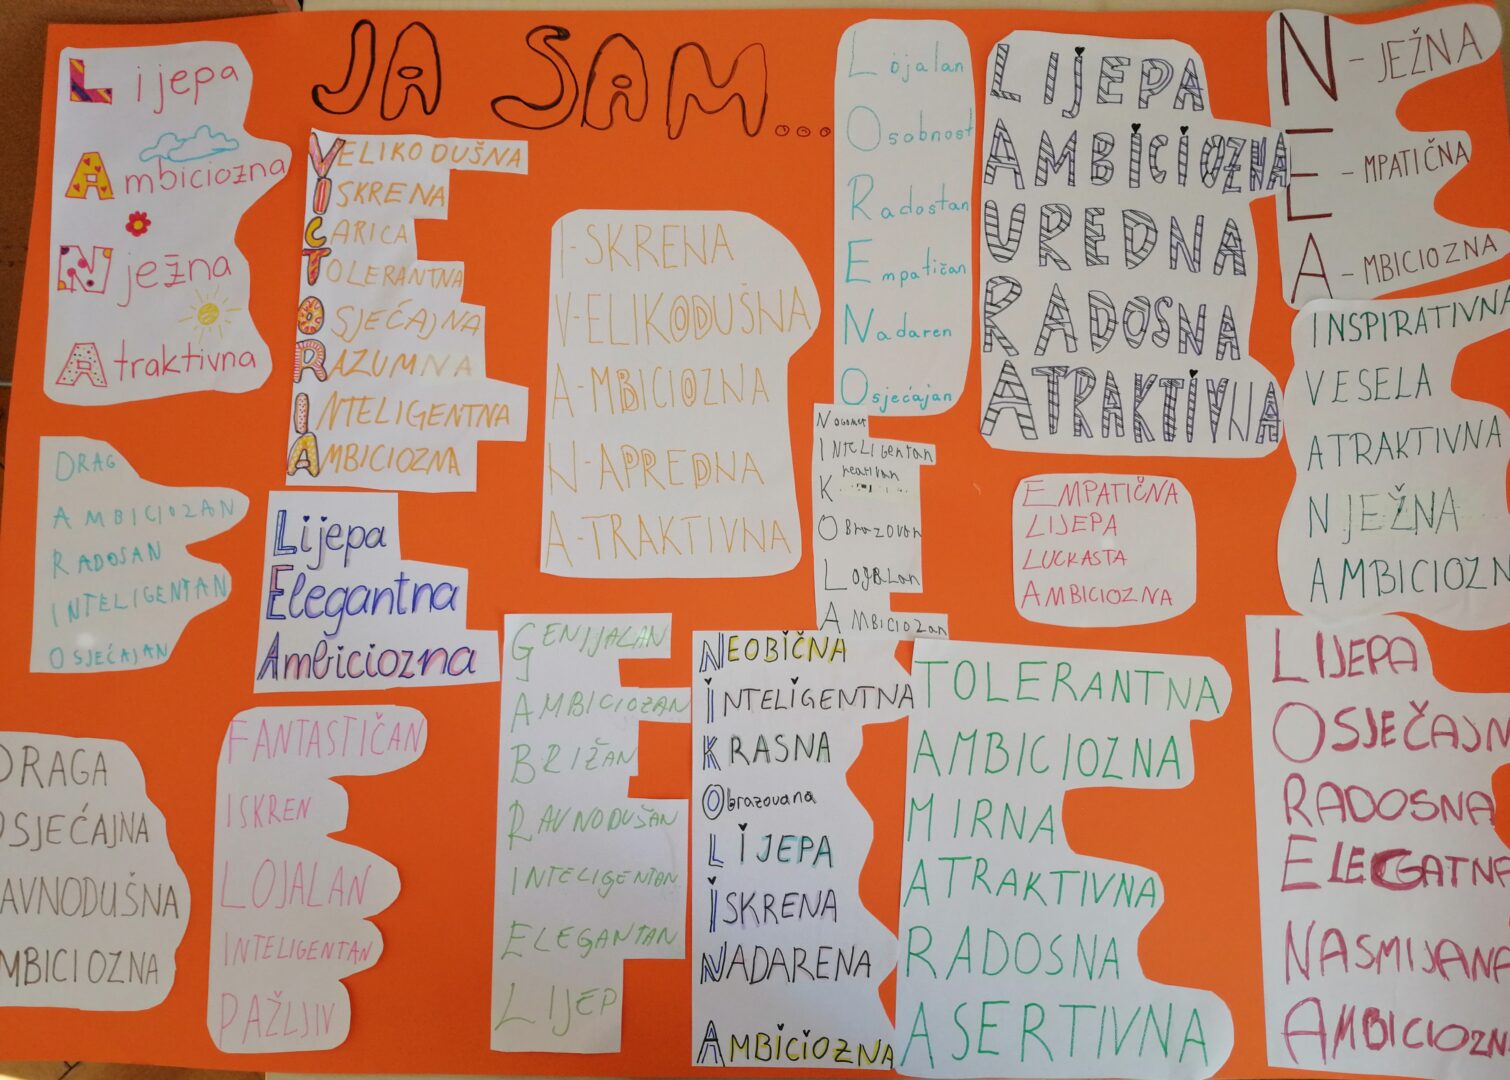 JA SAM...
Lijepa
Ambiciozna
Nježna
Atraktivna
VELIKODUŠNA
ISKRENA
CARICA
TOLERANTNA
OSJEĆAJNA
RAZUMNA
INTELIGENTNA
AMBICIOZNA
I-SKRENA
V-ELIKODUŠNA
A-MBICIOZNA
N-APREDNA
A-TRAKTIVNA
Lojalan
Osobnost
Radostan
Empatičan
Nadaren
Osjećajan
LIJEPA
AMBICIOZNA
UREDNA
RADOSNA
ATRAKTIVNA
N-JEŽNA
E-MPATIČNA
A-MBICIOZNA
INSPIRATIVNA
VESELA
ATRAKTIVNA
NJEŽNA
AMBICIOZN
DRAG
AMBICIOZAN
RADOSAN
INTELIGENTAN
OSJEĆAJAN
Lijepa
Elegantna
Ambiciozna
Nogomet
INTELIGENTAN
Kreativan
Obrazovan
LOJALAN
AMBICIOZAN
EMPATIČNA
LIJEPA
LUCKASTA
AMBICIOZNA
DRAGA
OSJEĆAJNA
AVNODUŠNA
MBICIOZNA
FANTASTIČAN
ISKREN
LOJALAN
INTELIGENTAN
PAŽLJIV
GENIJALAN
AMBICIOZAN
BRIŽAN
RAVNODUŠAN
INTELIGENTAN
ELEGANTAN
LIJEP
NEOBIČNA
INTELIGENTNA
KRASNA
Obrazovana
LIJEPA
ISKRENA
NADARENA
AMBICIOZNA
TOLERANTNA
AMBICIOZNA
MIRNA
ATRAKTIVNA
RADOSNA
ASERTIVNA
LIJEPA
OSJEČAJN
RADOSNA
ELEGATNA
NASMIJANA
AMBICIOZN